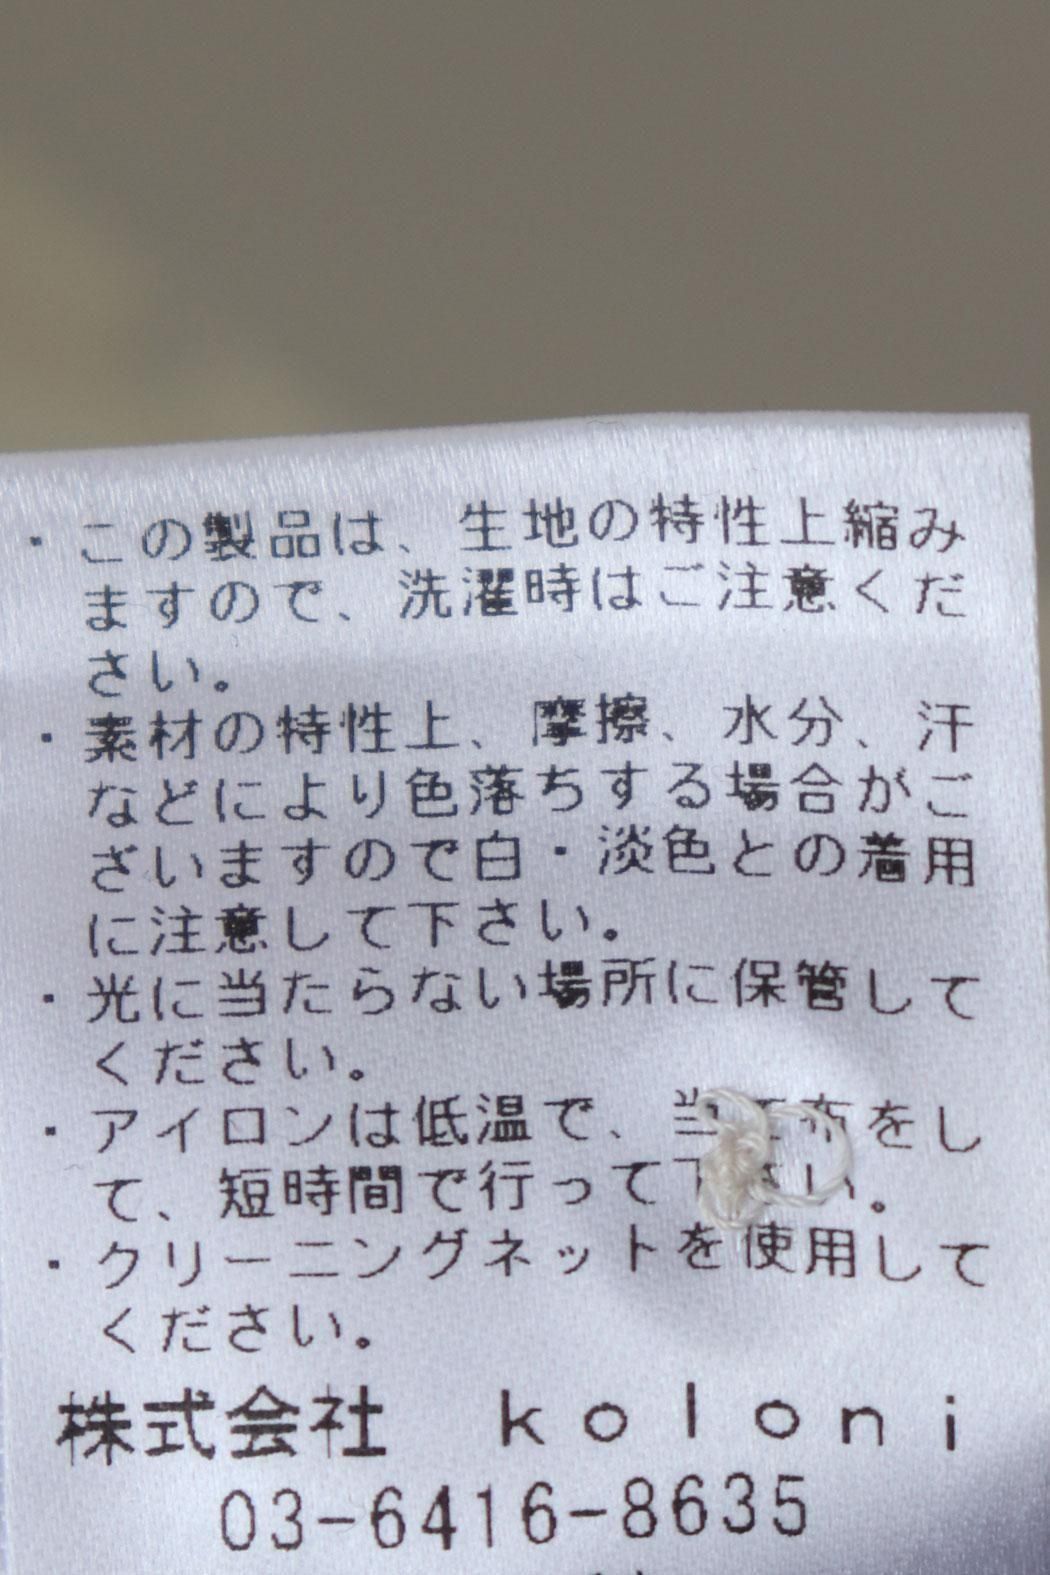 ・この製品は、生地の特性上縮み
ますので、洗濯時はご注意くだ
さい。
・素材の特性上、摩擦、水分、汗
などにより色落ちする場合がご
ざいますので白・淡色との着用
に注意して下さい。
・光に当たらない場所に保管して
ください。
・アイロンは低温で、当て布をし
て、短時間で行って下さい。
・クリーニングネットを使用して
ください。
株式会社 koloni
03-6416-8635